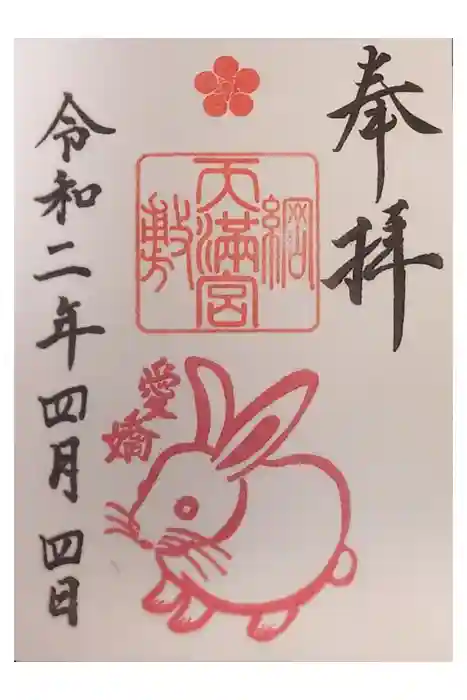 奉拝
綱
天満宮
敷
愛嬌
令和二年四月四日